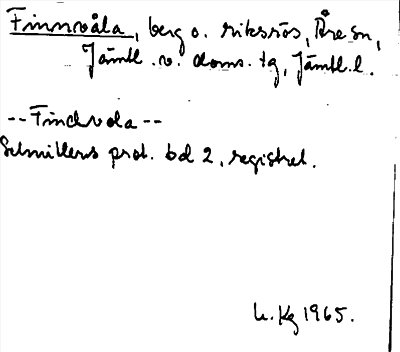 Finnvåla, berg o. riksrös, Åre sn,
Jämtl. v. doms. tg, Jämtl. l.
--Findvola--
Schnitlers prot. bd 2, registret.
h. Kg 1965.